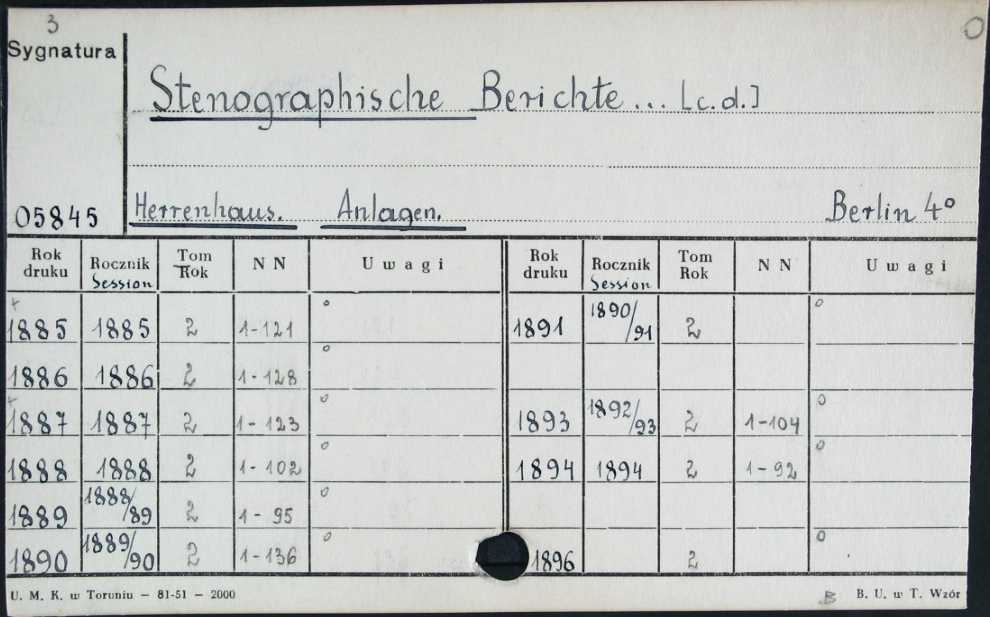 3
Sygnatura
Stenographische Berichte... [c.d.]
05845 Herrenhaus. Anlagen. Berlin 4°
Rok druku Rocznik Session Tom Rok NN Uwagi Rok druku Rocznik Session Tom Rok NN Uwagi
1885 1885 2 1-121 1891 1890/91 2
1886 1886 2 1-128
1887 1887 2 1-123 1893 1892/93 2 1-104
1888 1888 2 1-102 1894 1894 2 1-92
1889 1888/89 2 1-95
1890 1889/90 2 1-136 1896 2
U. M. K. w Toruniu — 81-51 — 2000 B B. U. w T. Wzór